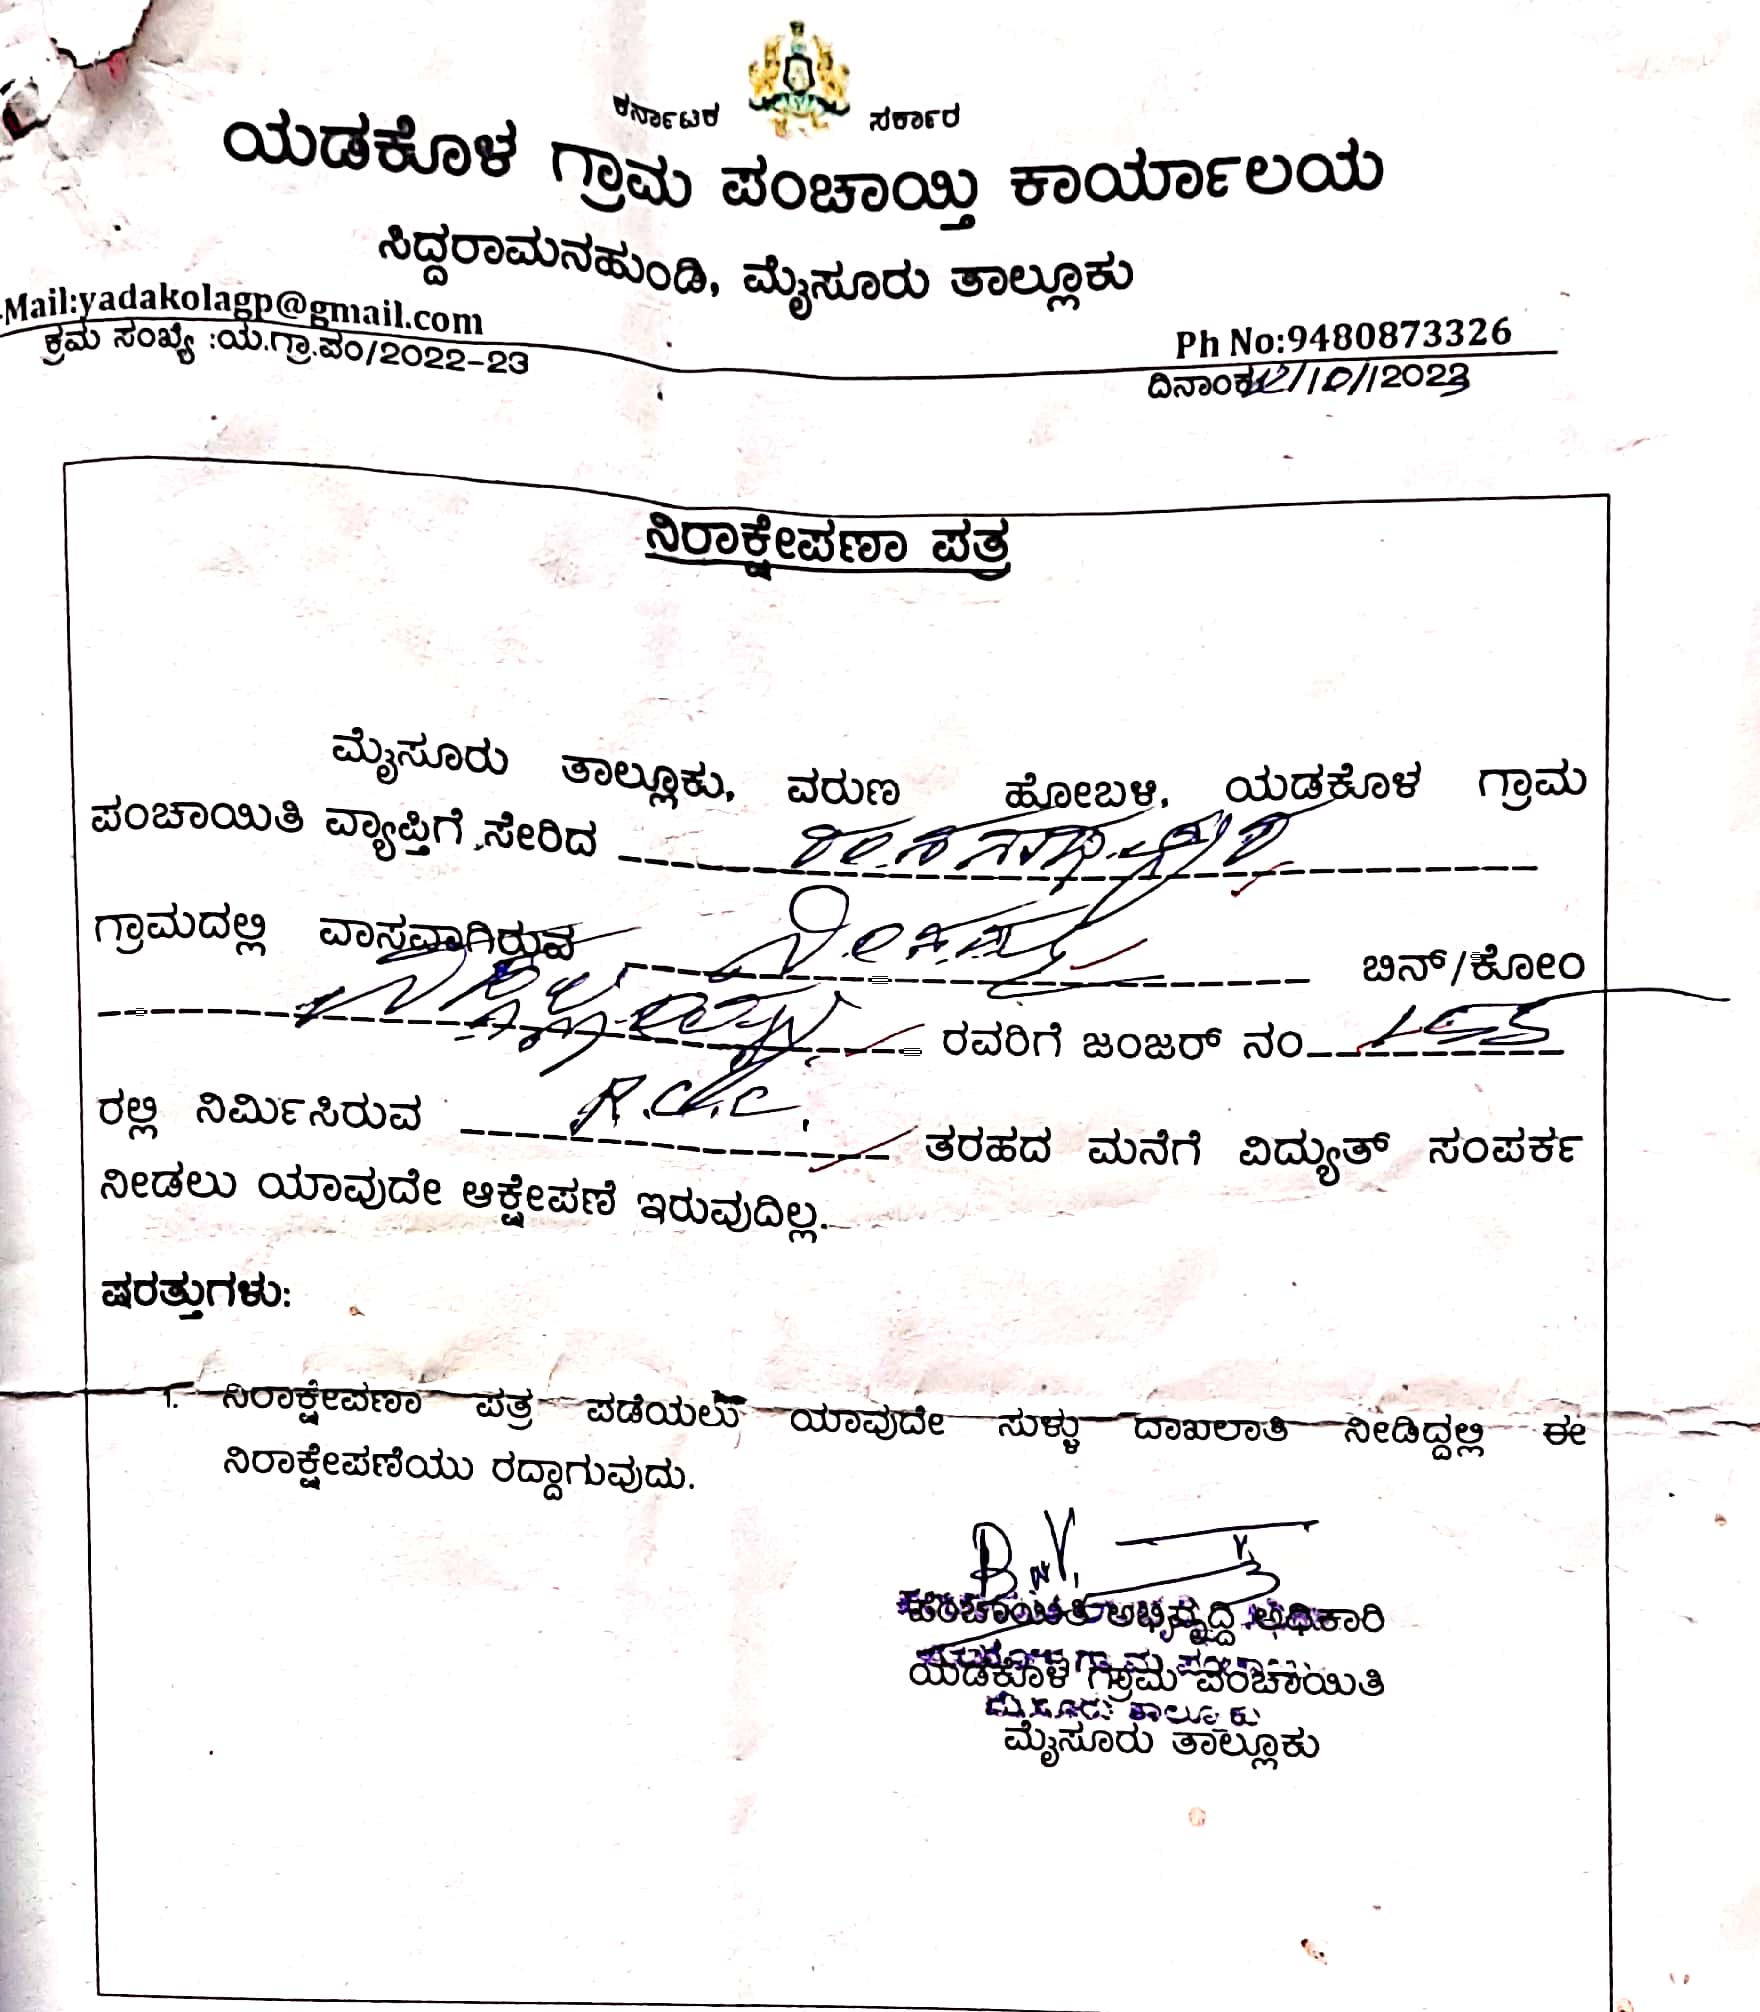 ಕರ್ನಾಟಕ ಸರ್ಕಾರ
ಯಡಕೊಳ ಗ್ರಾಮ ಪಂಚಾಯ್ತಿ ಕಾರ್ಯಾಲಯ
ಸಿದ್ದರಾಮನಹುಂಡಿ, ಮೈಸೂರು ತಾಲ್ಲೂಕು
Mail:yadakolagp@gmail.com
Ph No:9480873326
ಕ್ರಮ ಸಂಖ್ಯೆ :ಯ.ಗ್ರಾ.ಪಂ/2022-23
ದಿನಾಂಕ12/10/2023
ನಿರಾಕ್ಷೇಪಣಾ ಪತ್ರ
ಮೈಸೂರು ತಾಲ್ಲೂಕು, ವರುಣ ಹೋಬಳಿ, ಯಡಕೊಳ ಗ್ರಾಮ
ಪಂಚಾಯಿತಿ ವ್ಯಾಪ್ತಿಗೆ ಸೇರಿದ
ಗ್ರಾಮದಲ್ಲಿ ವಾಸವಾಗಿರುವ ಬಿನ್/ಕೋಂ
ರವರಿಗೆ ಜಂಜರ್ ನಂ 155
ರಲ್ಲಿ ನಿರ್ಮಿಸಿರುವ R.C.C. ತರಹದ ಮನೆಗೆ ವಿದ್ಯುತ್ ಸಂಪರ್ಕ
ನೀಡಲು ಯಾವುದೇ ಆಕ್ಷೇಪಣೆ ಇರುವುದಿಲ್ಲ.
ಷರತ್ತುಗಳು:
1. ನಿರಾಕ್ಷೇಪಣಾ ಪತ್ರ ಪಡೆಯಲು ಯಾವುದೇ ಸುಳ್ಳು ದಾಖಲಾತಿ ನೀಡಿದ್ದಲ್ಲಿ ಈ
ನಿರಾಕ್ಷೇಪಣೆಯು ರದ್ದಾಗುವುದು.
ಪಂಚಾಯಿತಿ ಅಭಿವೃದ್ಧಿ ಅಧಿಕಾರಿ
ಯಡಕೊಳ ಗ್ರಾಮ ಪಂಚಾಯಿತಿ
ಮೈಸೂರು ತಾಲ್ಲೂಕು
ಮೈಸೂರು ತಾಲ್ಲೂಕು